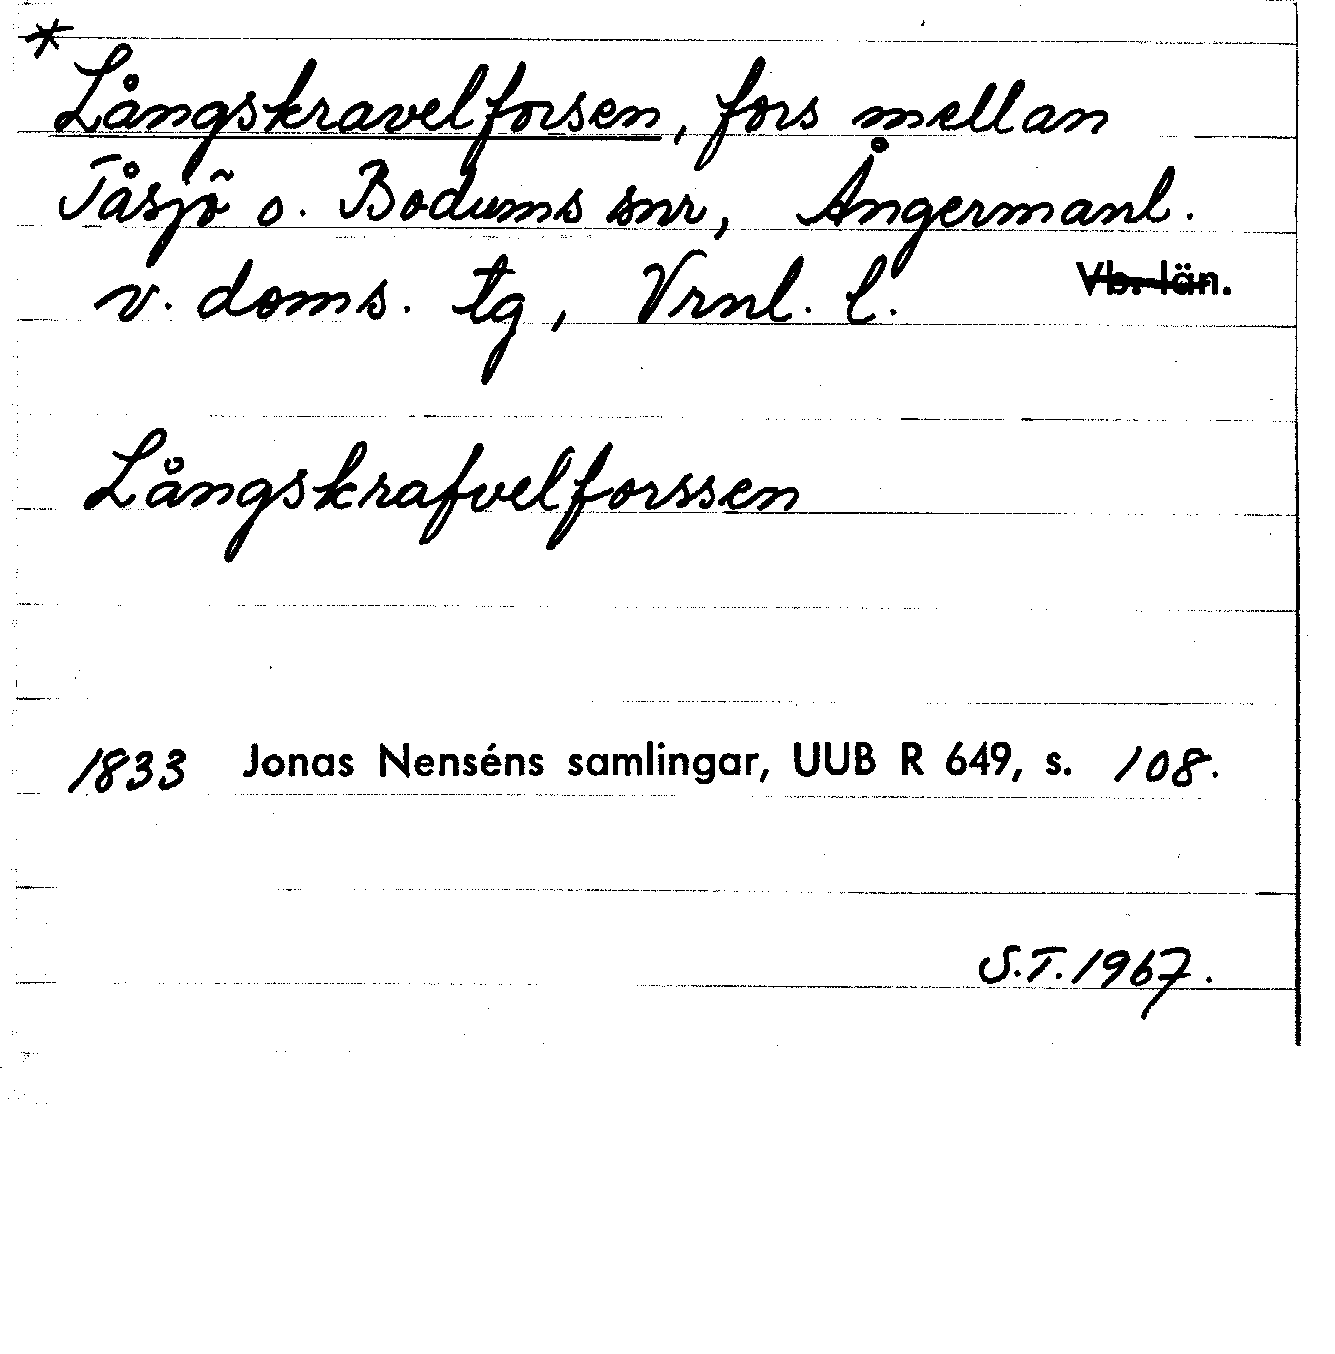 * Långskravelforsen, fors mellan
Tåsjö o. Bodums snr, Ångermanl.
v. doms. tg, Vrnl. l. Vb. län.
Långskrafvelforssen
1833 Jonas Nenséns samlingar, UUB R 649, s. 108.
S.T. 1967.